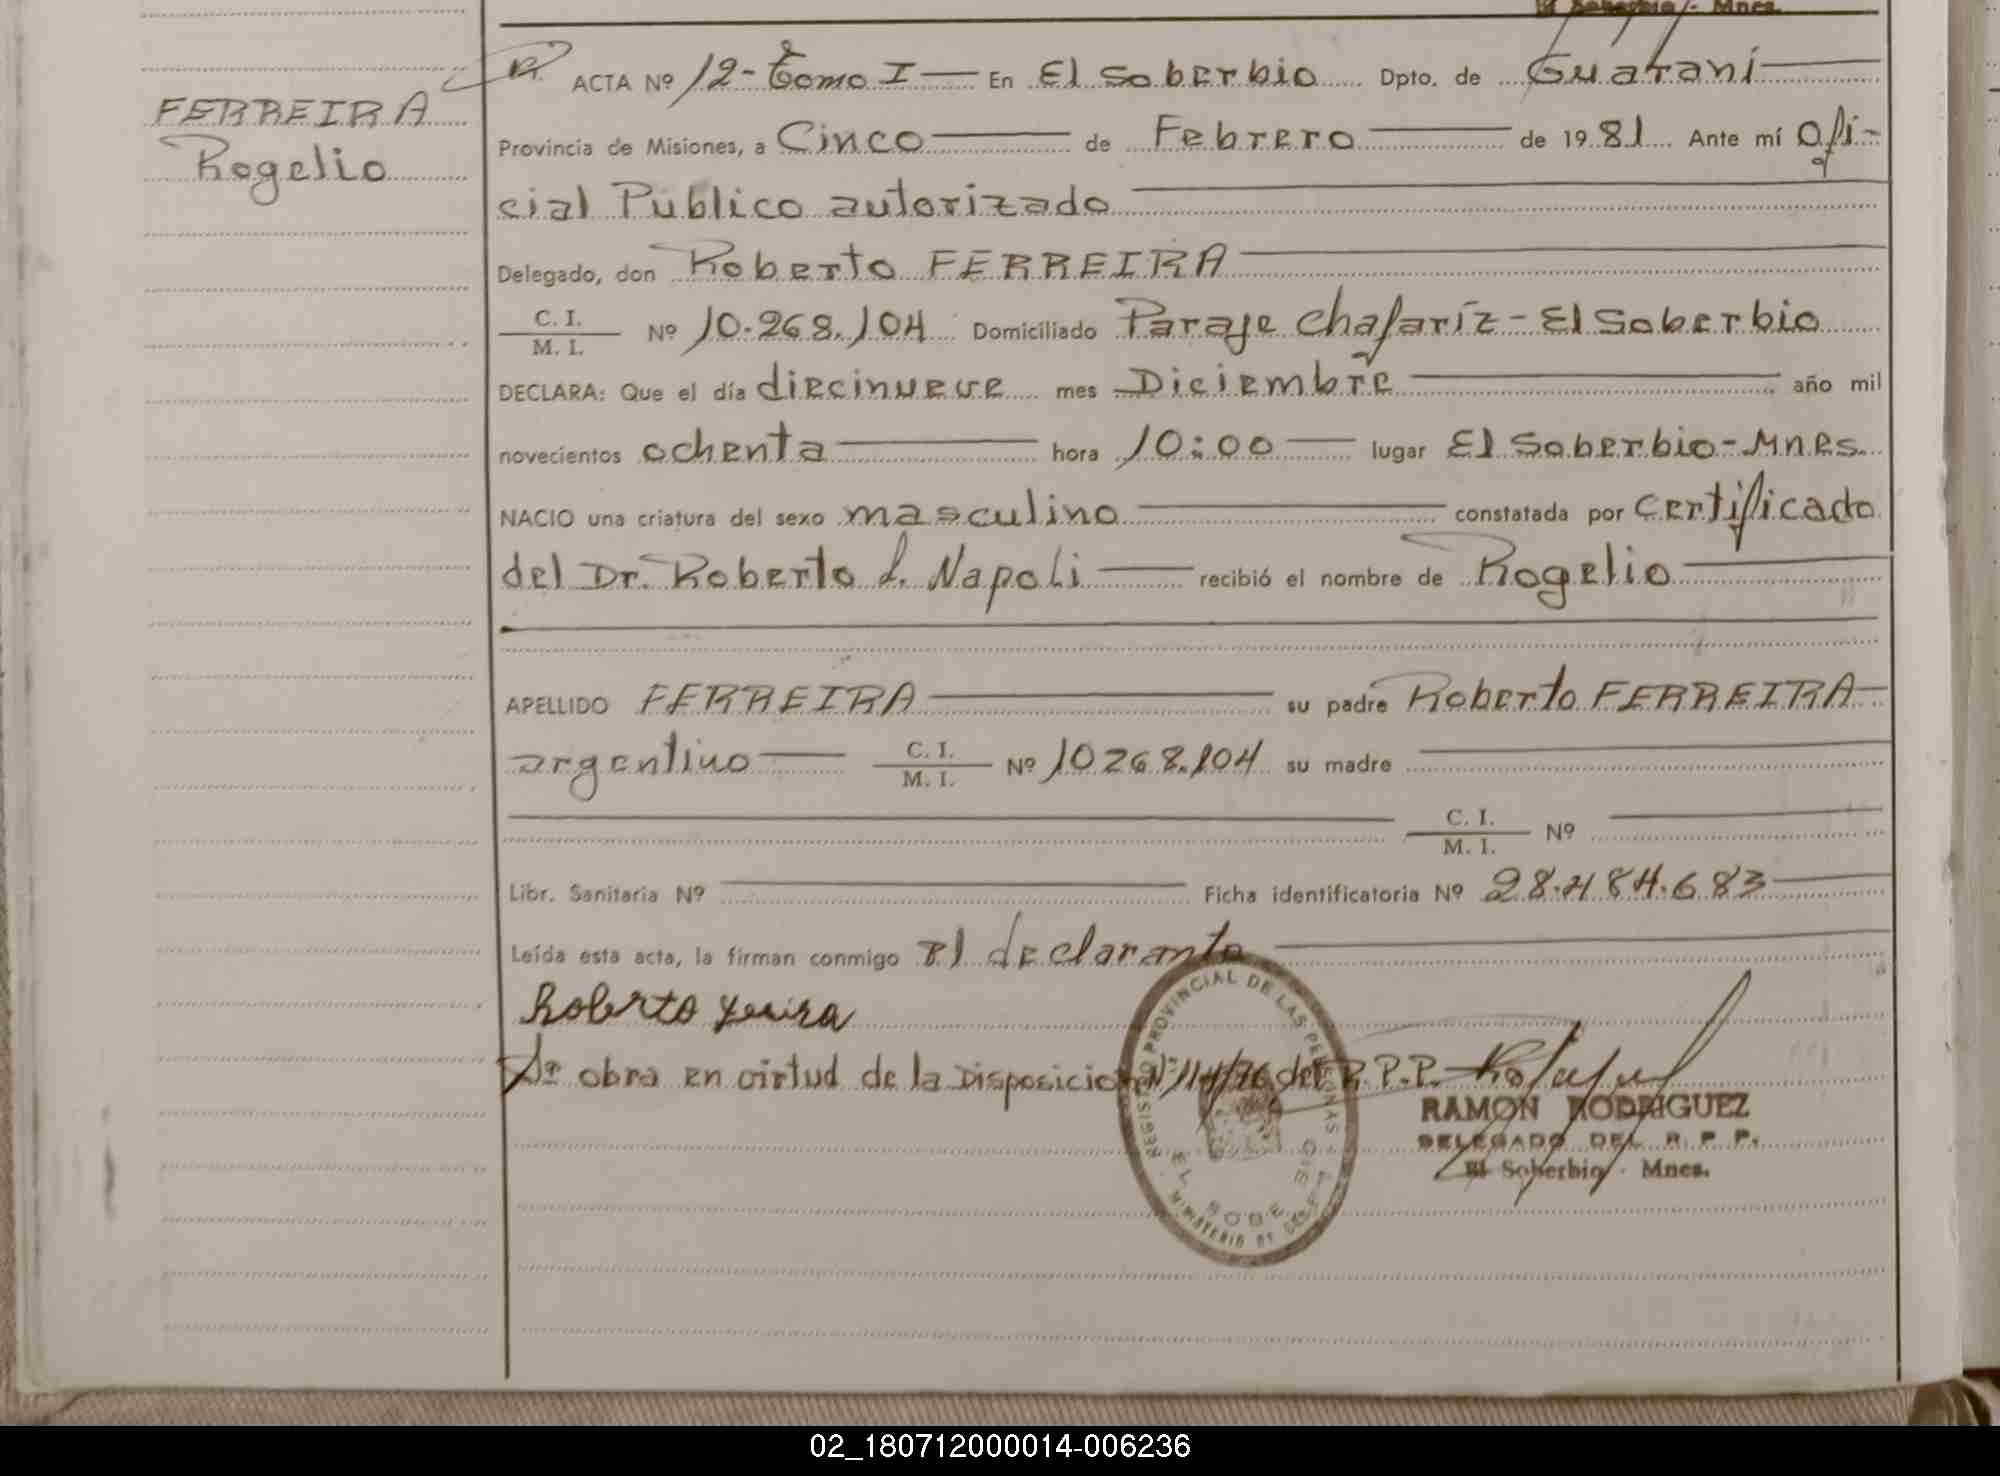 El Soberbio - Mnes.
FERREIRA
Rogelio
ACTA Nº 12- Tomo I En El Soberbio Dpto. de Guaraní
Provincia de Misiones, a Cinco de Febrero de 1981 Ante mí Ofi-
cial Público autorizado
Delegado, don Roberto FERREIRA
C. I.
M. I.
Nº 10.268.104 Domiciliado Paraje Chafaríz - El Soberbio
DECLARA: Que el día diecinueve mes Diciembre año mil
novecientos ochenta hora 10:00 lugar El Soberbio-Mnes.
NACIO una criatura del sexo masculino constatada por certificado
del Dr. Roberto L. Napoli recibió el nombre de Rogelio
APELLIDO FERREIRA su padre Roberto FERREIRA
argentino C. I.
M. I.
Nº 10268.104 su madre
C. I.
M. I.
Nº
Libr. Sanitaria Nº Ficha identificatoria Nº 28.484.683
Leída esta acta, la firman conmigo el declarante
Roberto
obra en virtud de la Disposicion Nº 114/76 del R.P.P.
REGISTRO PROVINCIAL DE LAS PERSONAS
EL SOBERBIO
RAMON RODRIGUEZ
DELEGADO DEL R. P. P.
El Soberbio - Mnes.
02_180712000014-006236